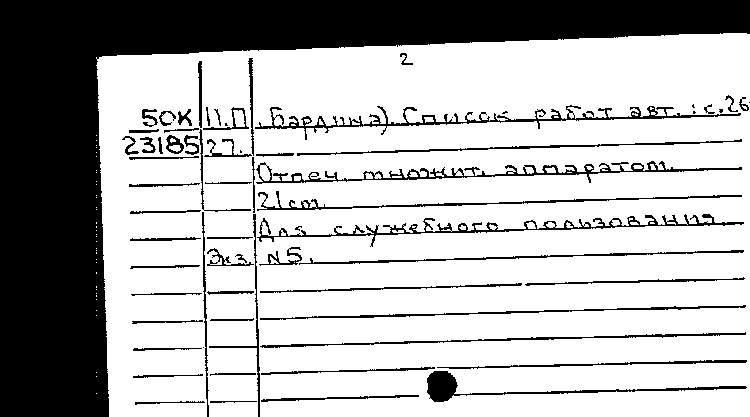 2
50К И.П. Бардина). Список работ авт.: с.26
23185 27.
Отпеч. множит. аппаратом.
21см.
Для служебного пользования.
Экз. N5.